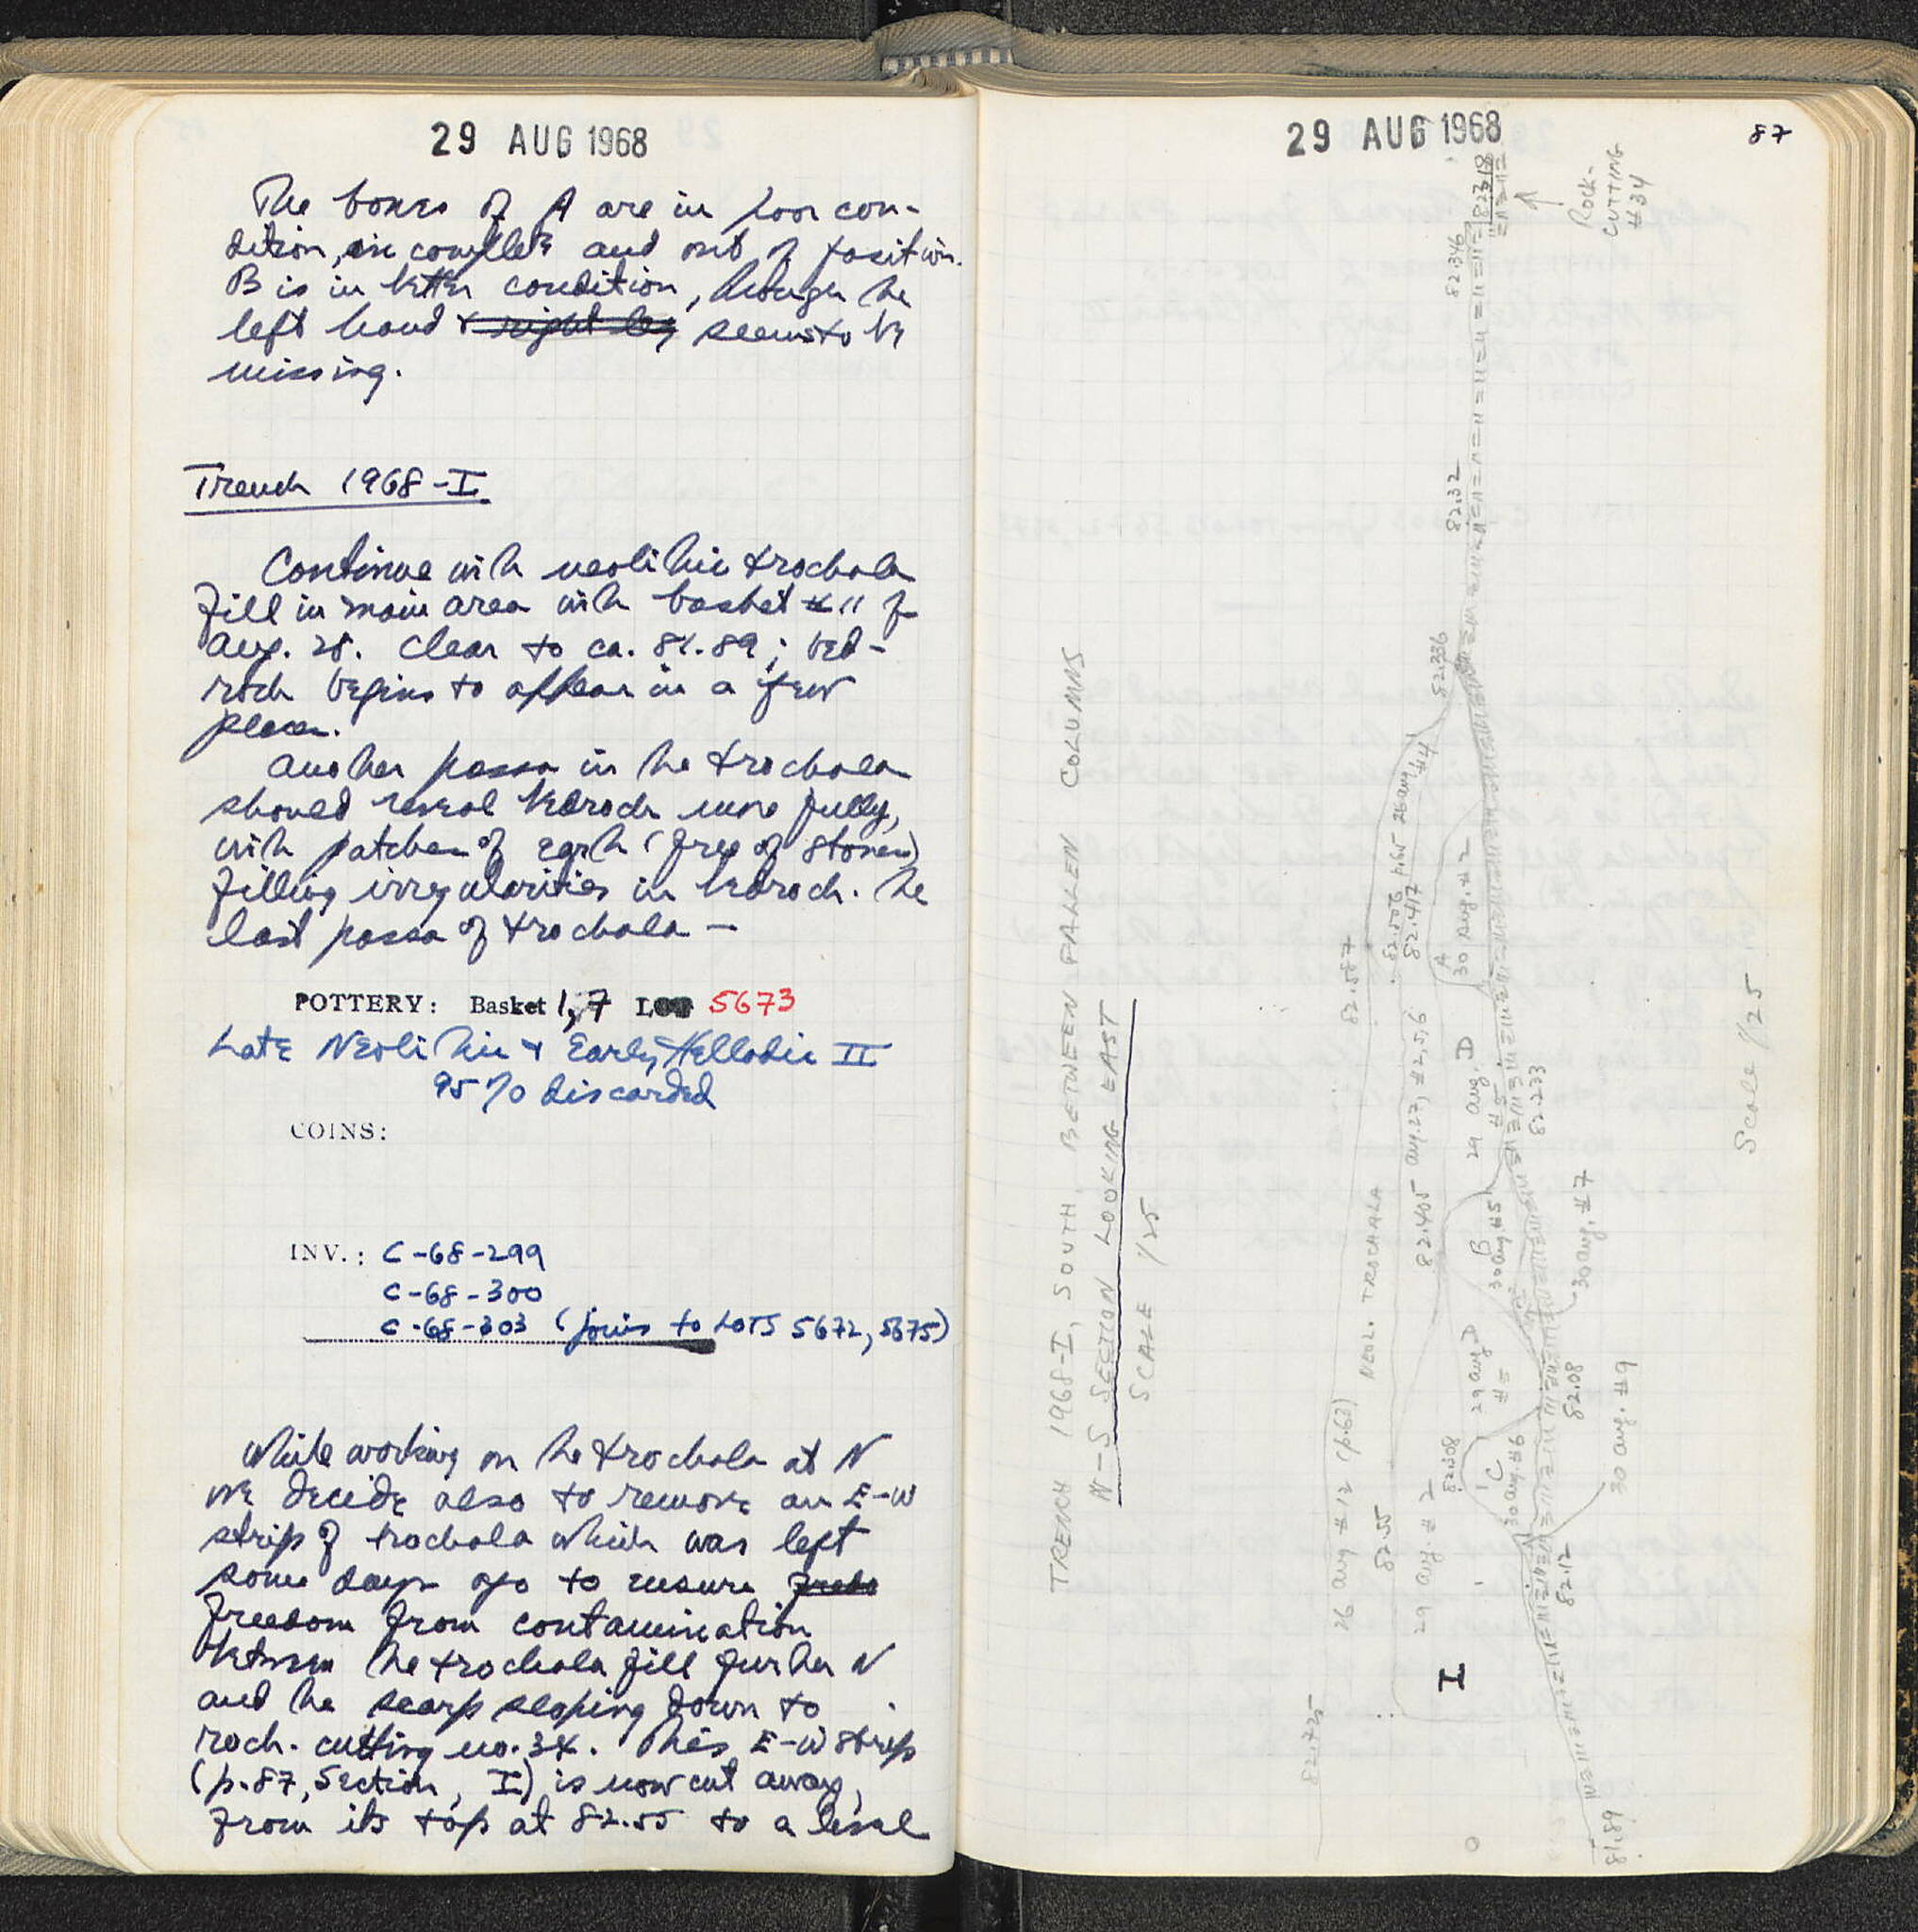 29 AUG 1968
The bones of A are in poor con-
dition, incomplete and out of position.
B is in better condition, though the
left hand & right leg seems to be
missing.
Trench 1968-I
Continue with neolithic trochala
fill in main area with basket #11 of
Aug. 28. Clear to ca. 81.89; bed-
rock begins to appear in a few
places.
Another passa in the trochala
should reveal bedrock more fully,
with patches of earth (free of stones)
filling irregularities in bedrock. The
last passa of trochala —
POTTERY: Basket 1, 7 LOT 5673
Late Neolithic & Early Helladic II
95% discarded
COINS:
INV.: C-68-299
C-68-300
C-68-303 (joins to LOTS 5672, 5675)
While working on the trochala at N
we decide also to remove an E-W
strip of trochala which was left
some days ago to ensure
freedom from contamination
between the trochala fill further N
and the scarp sloping down to
rock-cutting no. 34. This E-W strip
(p. 87, Section, I) is now cut away,
from its top at 82.55 to a level
29 AUG 1968
87
TRENCH 1968-I, SOUTH, BETWEEN FALLEN COLUMNS
N-S SECTION LOOKING EAST
SCALE 1/25
82.725
26 aug #12 (p.63)
NEOL. TROCHALA
82.587
82.55
82.506 p.65 26 aug
#4
82.417
29 aug. #2
82.405 aug. 27, #2,5,6
82.336
82.32
82.346
82.318
I
82.308
A
30 aug. #2
29 aug. D
#5
B
30 aug #5
29 aug D
#=
C
30 aug. #6
82.233
82.08
82.12
30 aug. #7
30 aug. #9
81.89
ROCK-
CUTTING
#34
Scale 1/25